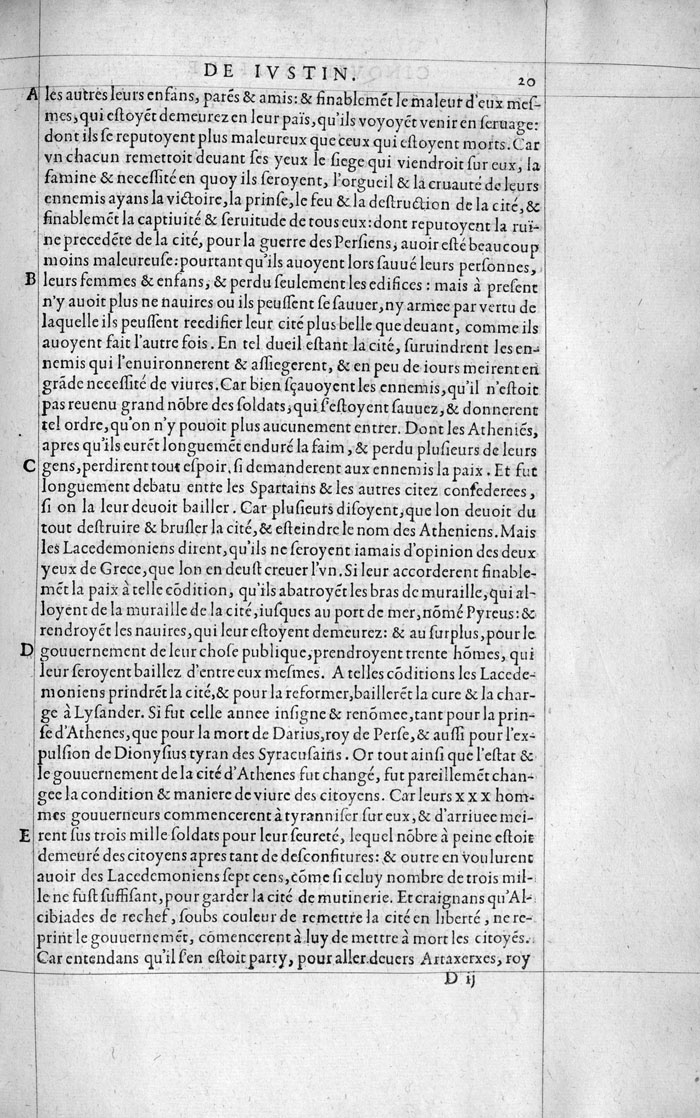 DE IVSTIN.
20
A les autres leurs enfans, parẽs & amis: & finablemẽt le maleur d'eux meſ-
mes, qui eſtoyẽt demeurez en leur païs, qu'ils voyoyẽt venir en ſeruage:
dont ils ſe reputoyent plus maleureux que ceux qui eſtoyent morts. Car
vn chacun remettoit deuant ſes yeux le ſiege qui viendroit ſur eux, la
famine & neceſſité en quoy ils ſeroyent, l'orgueil & la cruauté de leurs
ennemis ayans la victoire, la prinſe, le feu & la deſtruction de la cité, &
finablemẽt la captiuité & ſeruitude de tous eux: dont reputoyent la ruï-
ne precedẽte de la cité, pour la guerre des Perſiens, auoir eſté beaucoup
moins maleureuſe: pourtant qu'ils auoyent lors ſauué leurs perſonnes,
B leurs femmes & enfans, & perdu ſeulement les edifices: mais à preſent
n'y auoit plus ne nauires ou ils peuſſent ſe ſauuer, ny armee par vertu de
laquelle ils peuſſent reedifier leur cité plus belle que deuant, comme ils
auoyent fait l'autre fois. En tel dueil eſtant la cité, ſuruindrent les en-
nemis qui l'enuironnerent & aſſiegerent, & en peu de iours meirent en
grãde neceſſité de viures. Car bien ſçauoyent les ennemis, qu'il n'eſtoit
pas reuenu grand nõbre des ſoldats, qui ſ'eſtoyent ſauuez, & donnerent
tel ordre, qu'on n'y pouoit plus aucunement entrer. Dont les Atheniẽs,
apres qu'ils eurẽt longuemẽt enduré la faim, & perdu pluſieurs de leurs
C gens, perdirent tout eſpoir, ſi demanderent aux ennemis la paix. Et fut
longuement debatu entre les Spartains & les autres citez confederees,
ſi on la leur deuoit bailler. Car pluſieurs diſoyent, que lon deuoit du
tout deſtruire & bruſler la cité, & eſteindre le nom des Atheniens. Mais
les Lacedemoniens dirent, qu'ils ne ſeroyent iamais d'opinion des deux
yeux de Grece, que lon en deuſt creuer l'vn. Si leur accorderent finable-
mẽt la paix à telle cõdition, qu'ils abatroyẽt les bras de muraille, qui al-
loyent de la muraille de la cité, iuſques au port de mer, nõmé Pyreus: &
rendroyẽt les nauires, qui leur eſtoyent demeurez: & au ſurplus, pour le
D gouuernement de leur choſe publique, prendroyent trente hõmes, qui
leur ſeroyent baillez d'entre eux meſmes. A telles cõditions les Lacede-
moniens prindrẽt la cité, & pour la reformer, baillerẽt la cure & la char-
ge à Lyſander. Si fut celle annee inſigne & renõmee, tant pour la prin-
ſe d'Athenes, que pour la mort de Darius, roy de Perſe, & auſſi pour l'ex-
pulſion de Dionyſius tyran des Syracuſains. Or tout ainſi que l'eſtat &
le gouuernement de la cité d'Athenes fut changé, fut pareillemẽt chan-
gee la condition & maniere de viure des citoyens. Car leurs x x x hom-
mes gouuerneurs commencerent à tyranniſer ſur eux, & d'arriuee mei-
E rent ſus trois mille ſoldats pour leur ſeureté, lequel nõbre à peine eſtoit
demeuré des citoyens apres tant de deſconfitures: & outre en voulurent
auoir des Lacedemoniens ſept cens, cõme ſi celuy nombre de trois mil-
le ne fuſt ſuffiſant, pour garder la cité de mutinerie. Et craignans qu'Al-
cibiades de rechef, ſoubs couleur de remettre la cité en liberté, ne re-
print le gouuernemẽt, cõmencerent à luy de mettre à mort les citoyẽs.
Car entendans qu'il ſ'en eſtoit party, pour aller deuers Artaxerxes, roy
D ij